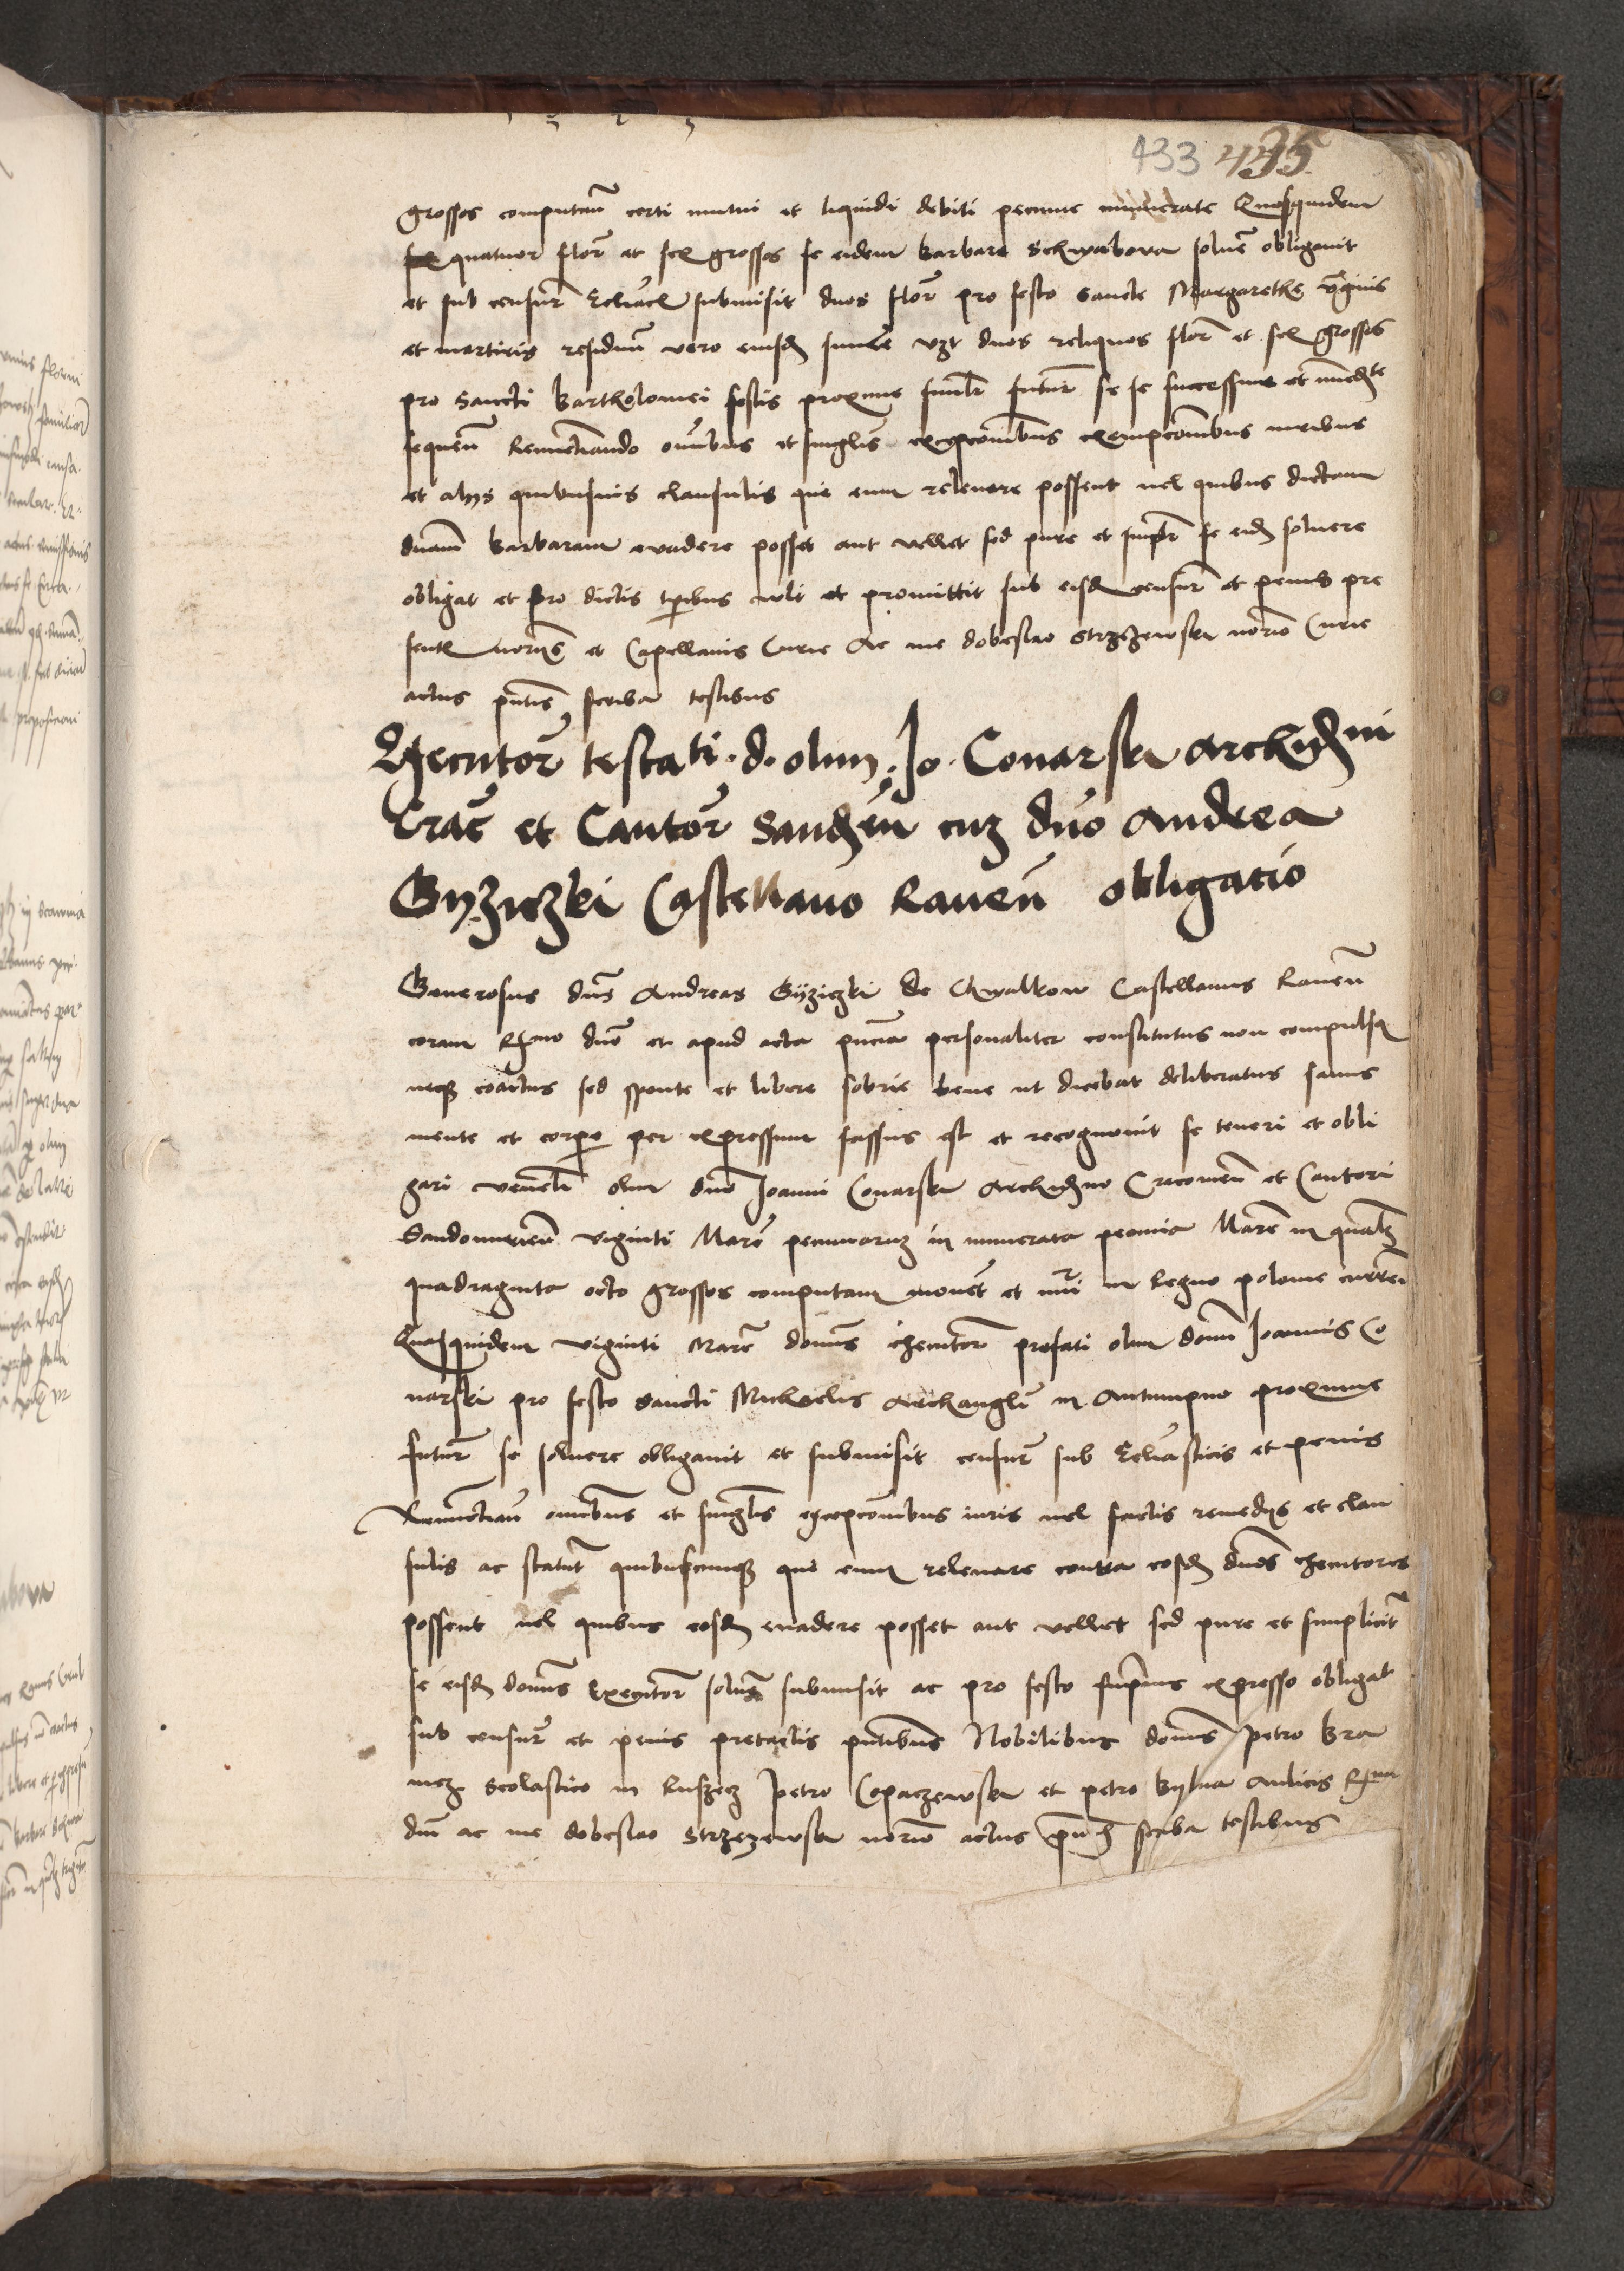 433 435
grossos computan̄ certi mutui et liquidi debiti pecunie numerate Quosquidem
quatuor flor̄ et sex grossos se eidem Barbare Schwabova soluē obligavit
et sub censur̄ Ecl̄iacȝ submisit duos flor̄ pro festo Sancte Margarethe v̄ginis
et martiris residuū vero eiusdȝ sum̄e vȝt duos reliquos flor̄ et sex grossos
pro Sancti Bartholomei festis proxime simlr̄ futur̄ se se successive et im̄edte
sequen̄ Renunctiando om̄ibus et singlis̄ excepcōnibus exempcōnibus iuribus
et alys quibusuis clausulis que eum relevare possent vel quibus dictam
dn̄am Barbaram evadere posset aut vellet sed pure et simplr̄ se eidȝ soluere
obligat et pro dictis tp̄ribus vult et promittit sub eisdȝ censur̄ et penis pre
sentȝ norȳs et Capellanis Curie Ac me dobeslao Strzezewski norīo Curie
actus pn̄tis scriba testibus
Executor̄ testati . d . olim . Jo . Conarski Archydni
Crac̄ et Cantor̄ Sandm̄ cuȝ dn̄o Andrea
Gyziczki Castellano Raven̄ obligatio
Generosus dn̄s Andreas Gyziczki de Chwalkow Castellanus Raven̄
coram Rmo dn̄o et apud acta pn̄cia personaliter constitutus non compulsꝰ
neqȝ coactus sed sponte et libere sobrie bene ut dicebat deliberatus sanus
mente et corpe per expressum fassus est et recognovit se teneri et obli
gari ven̄eli olim dn̄o Joanni Conarski Archydno Cracovien̄ et Cantori
Sandomirien̄ viginti Marc̄ pecuniaruȝ in numerata pecunia Marc̄ in qualȝ
quadraginta octo grossos computan monet̄ et nri in Regno polonie curren̄
Quasquidem viginti Marc̄ domīs executor̄ prefati olim domī Joannis Co
narski pro festo Sancti Michaelis Archangli̅ in Autumpno proxime
futur̄ se soluere obligavit et submisit censur̄ sub Ecl̄iasticis et penis
Renunctian̄ omībus et singlis̄ excepcōnibus iuris vel factis remedȳs et clau
sulis ac statut̄ quibuscumqȝ que eum relevare contra eosdȝ dn̄os executores
possent vel quibus eosdȝ evadere posset aut vellet sed pure et simplicitr̄
se eisdȝ domīs Executor̄ soluē submisit ac pro festo supīus expresso obligat
sub censur̄ et penis pretactis pn̄tibus Nobilibus domīs Petro Bra
nicz Scolastico in Ruszecz Petro Copaczewski et petro Bylina Aulicis Rmi
dni ac me dobeslao Strzezewski norīo actus pn̄tȝ scriba testibus